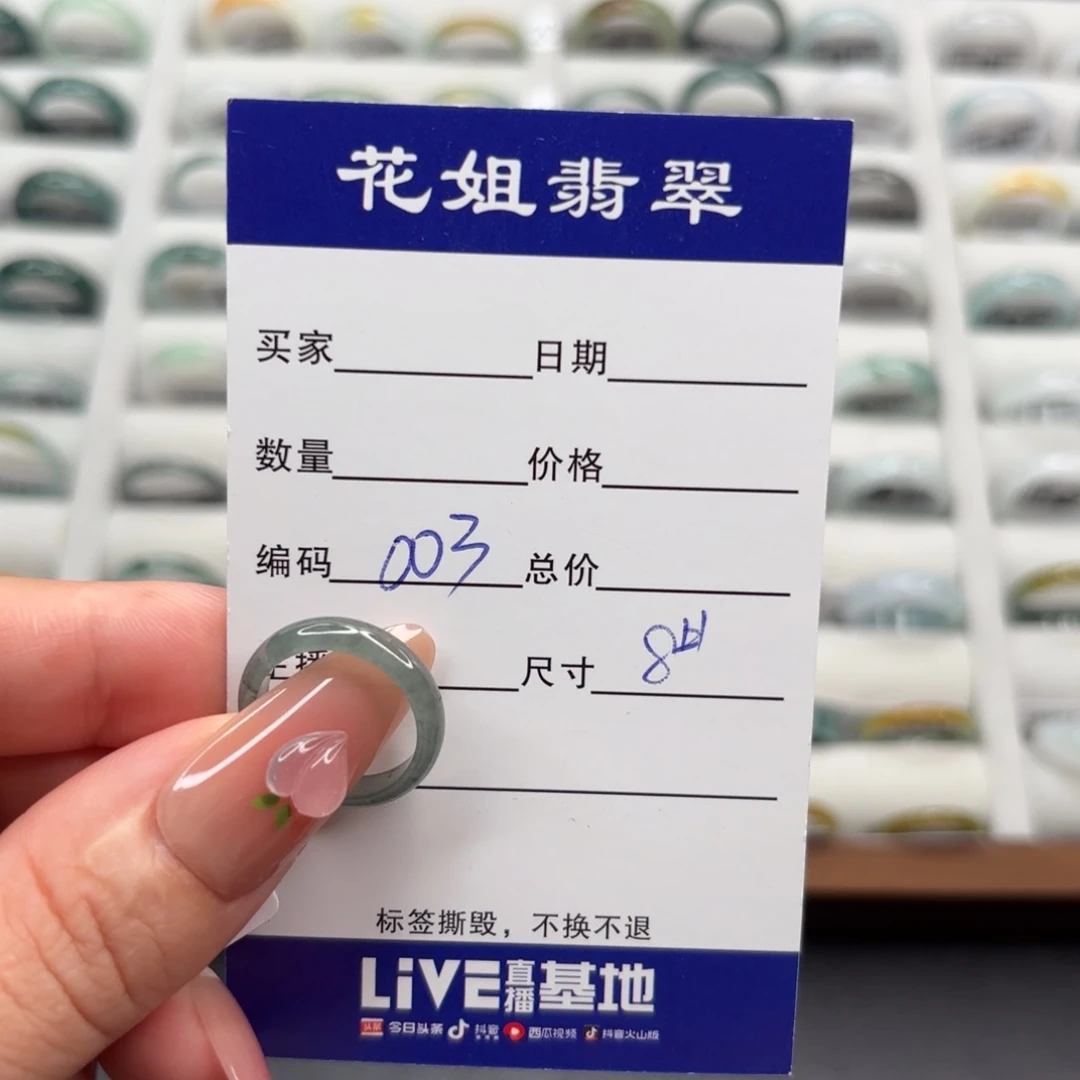 花姐翡翠
买家 日期
数量 价格
编码 003 总价
主播 尺寸 8#
标签撕毁，不换不退
LiVE直播基地
今日头条 抖音 西瓜视频 抖音火山版